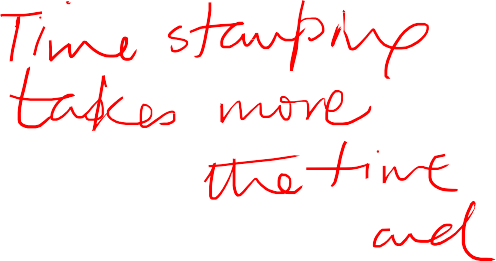 Time stamping
takes more
the time
and